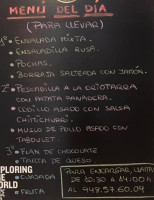 MENÚ DEL DÍA
(PARA LLEVAR)
1º • ENSALADA MIXTA.
• ENSALADILLA RUSA.
• POCHAS.
• BORRAJA SALTEADA CON JAMÓN.
2º • PESCADILLA A LA ORIOTARRA
CON PATATA PANADERA.
• CODILLO ASADO CON SALSA
CHIMICHURRI
• MUSLO DE POLLO ASADO CON
TABOULET
3º • FLAN DE CHOCOLATE
• TARTA DE QUESO
• CUAJADA
• FRUTA
PLORING
THE
WORLD
PARA ENCARGAR, LLAMAR
DE 10:30 A 14:00H
AL 947.57.60.09